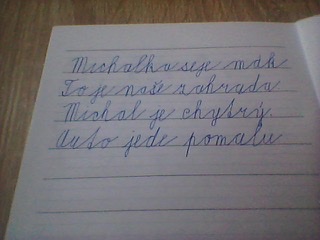 Michalka seje mák
To je naše zahrada
Michal je chytrý.
Auto jede pomalu